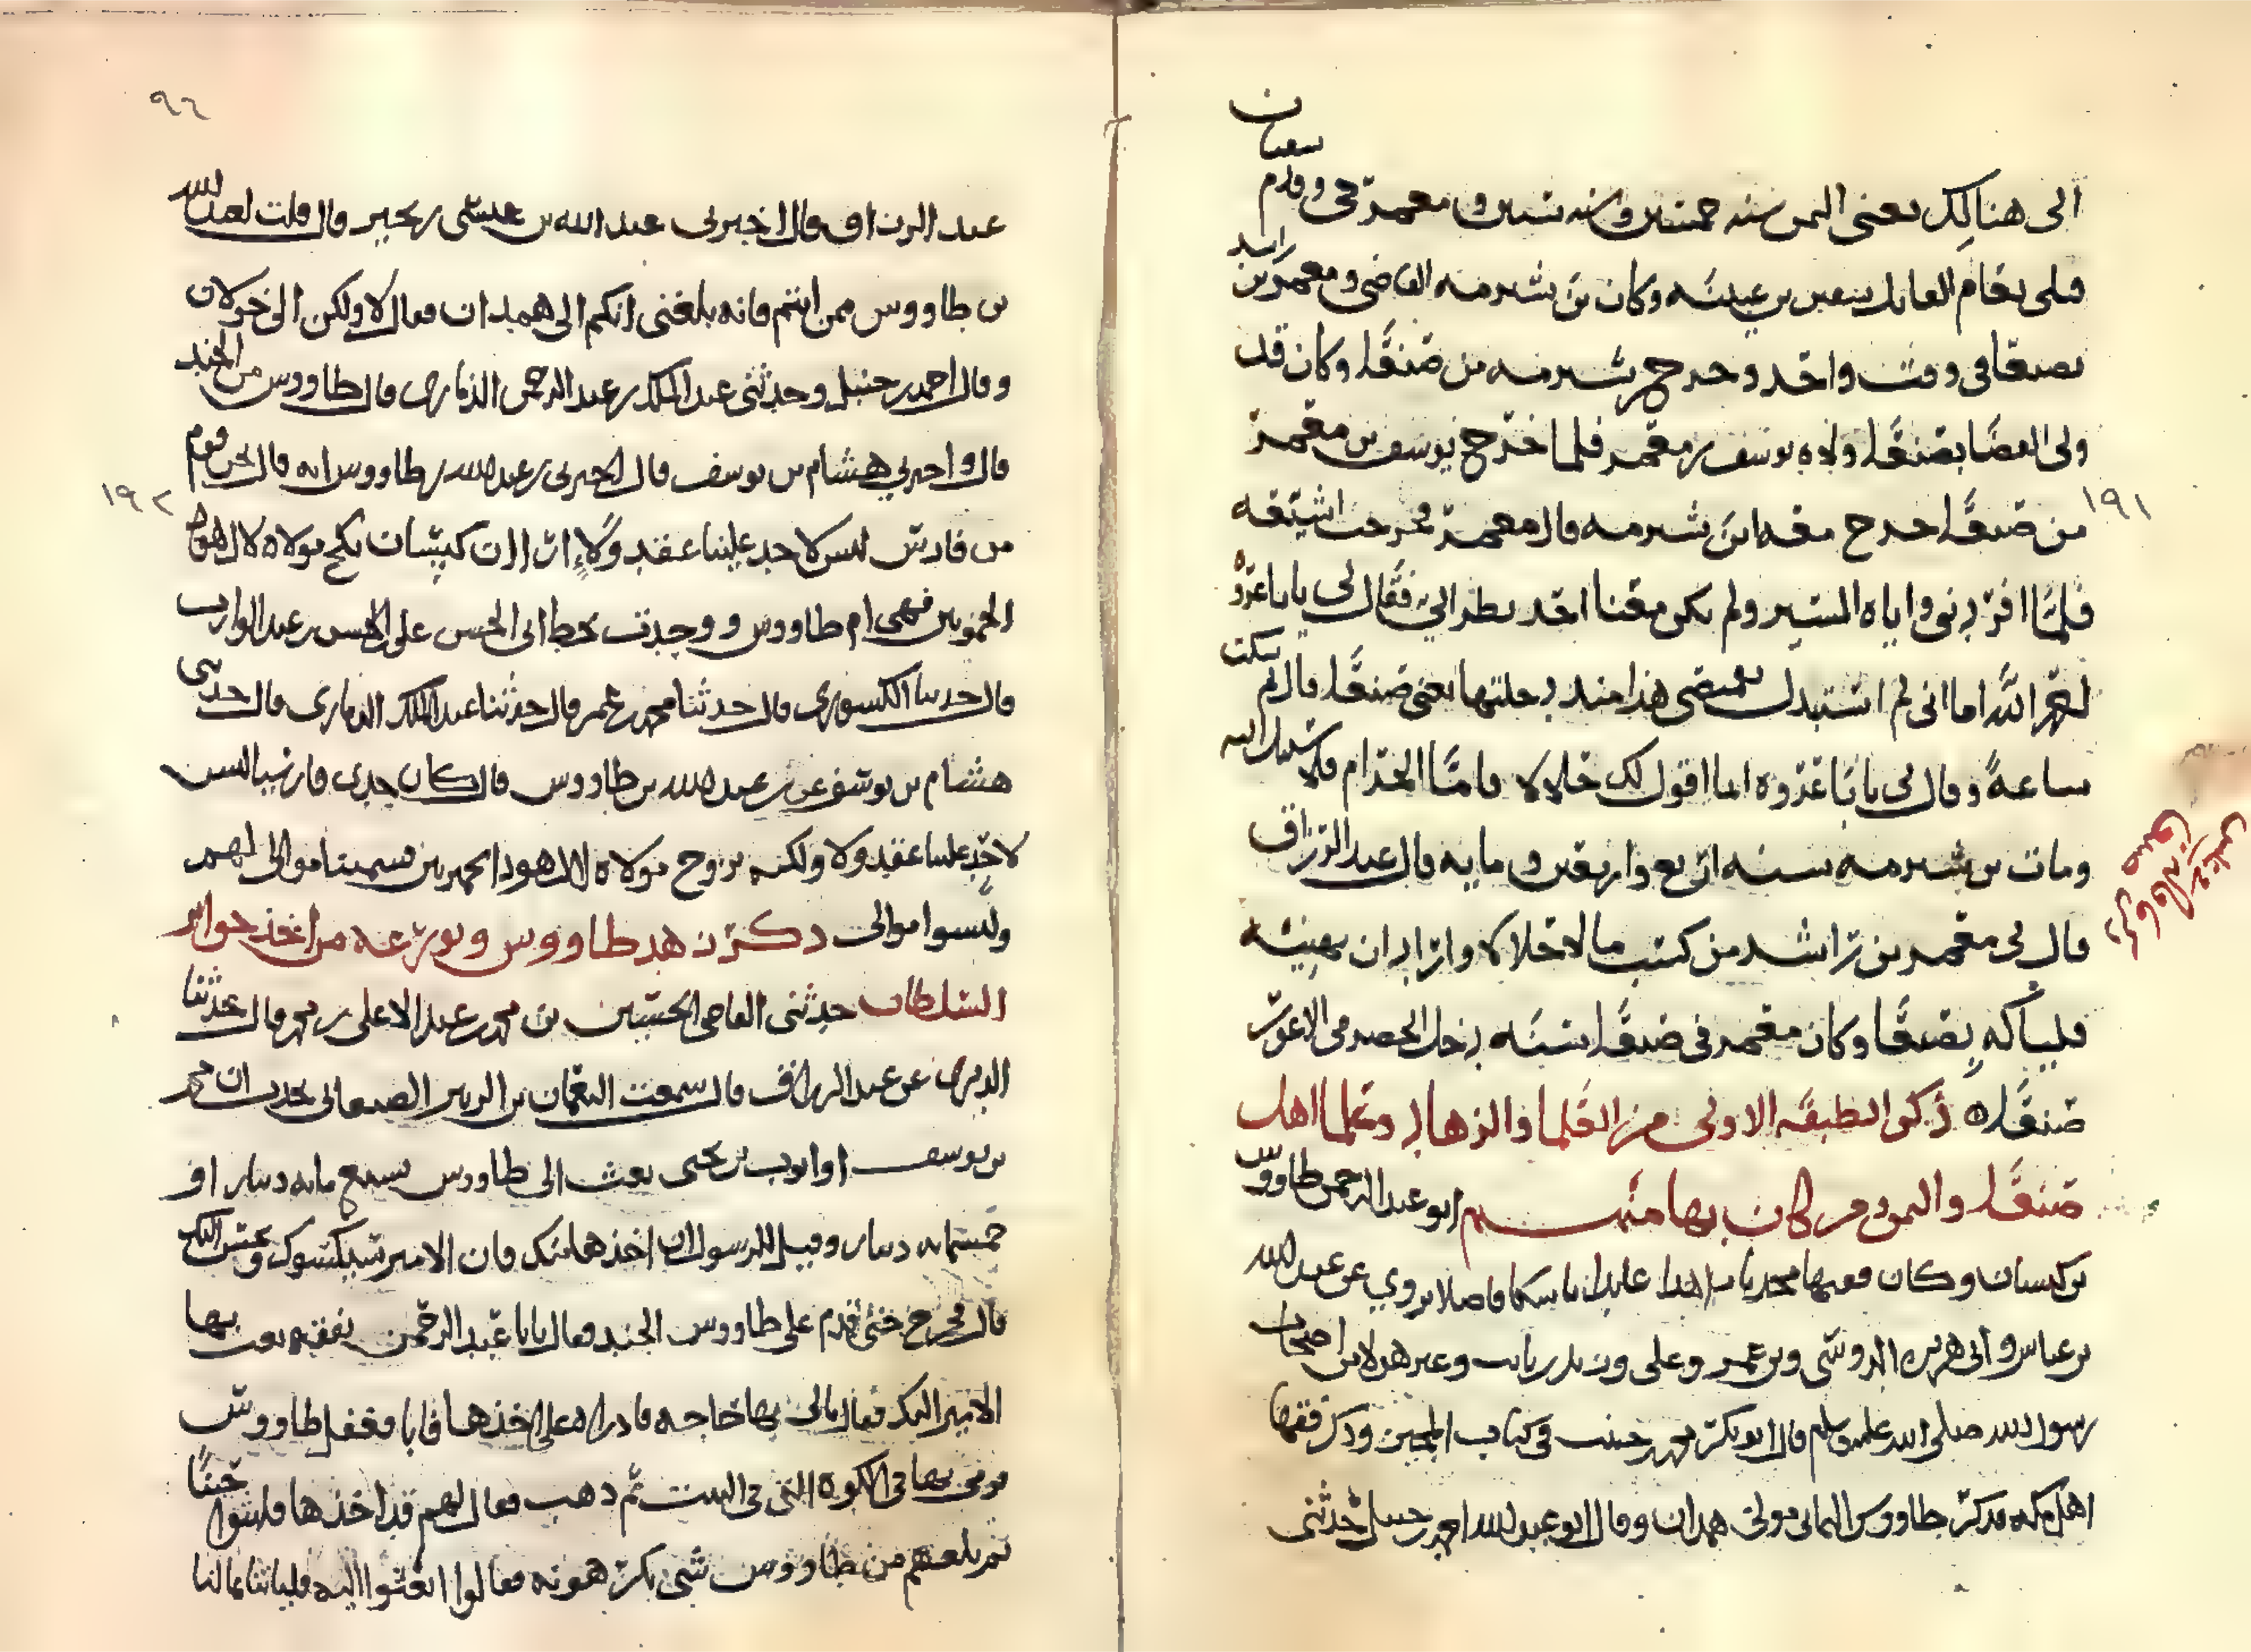 الى هنالك يعني اليمن سنة خمسين وسنة ستين ومعمر حي وقدم سفيان
فلمن يقام القائل سفين بن عيينه وكان بن شبرمه القاضي ومعمر بن راشد
بصنعا في وقت واحد وخرج بن شبرمه من صنعا وكان قد
ولي القضا بصنعا ولاه يوسف بن عمر فلما خرج يوسف بن عمر
١٩١
من صنعا خرج معه ابن شبرمه قال معمر فخرجت اشيعه
فلما افردني واياه المسير ولم يكن معنا احد نظر الي فقال لي يابا عروه
احمد الله اما اني لم استبدل بقميصي هذا منذ دخلتها يعني صنعا قال ثم سكت
ساعة وقال لي يابا عروه انما اقول لك حلالا فاما الحرام فلا سبيل اليه
ومات بن شبرمه سنه اربع واربعين ومايه قال عبد الرزاق
قال لي معمر بن راشد من كسب مالا حلالا واراد ان يهنيه
فلياكله بصنعا وكان معمر في صنعا سنه دخل الحضرمي الاعور
صنعاه ذكر الطبقه الاولى من العلما والزهاد وعلما اهل
صنعا واليمن ومن كان بها منهم ابو عبد الرحمن طاووس
بن كيسان وكان فقيها محدثا زاهدا عابدا ناسكا فاضلا يروي عن عبد الله
بن عباس وابي هريره الدوسي وبن عمر وعلى وزيد بن ثابت وغير هولا من اصحاب
رسول الله صلى الله عليه وسلم قال ابو بكر محمد بن حبيب في كتاب المحبر وذكر فقها
اهل مكه فذكر طاووس اليماني مولى همدان وقال ابو عبد الله احمد بن حنبل حدثني
٩٦
عبد الرزاق قال اخبرني عبد الله بن عيسى بن بحير قال قلت لعبد الله
بن طاووس ممن انتم فانه بلغني انكم الى همدان فقال لا ولكن الى خولان
وقال احمد بن حنبل وحدثني عبد الملك بن عبد الرحمن الذماري قال طاووس من الجند
قال واخبرني هشام بن يوسف قال اخبرني بن عبد الله بن طاووس انه قال نحن قوم
١٩٢
من فارس ليس لاحد علينا عقد ولاء الا ان كيسان نكح مولاه لال هوذ
الحميريين فهي ام طاووس ووجدت بخط ابي الحسن علي بن الحسن بن عبد الوارث
قال حدثنا الكشوري قال حدثنا محمد بن عمر قال حدثنا عبد الملك الذماري قال حدثني
هشام بن يوسف عن بن عبد الله بن طاووس قال كان جدي فارسيا ليس
لاحد علينا عقد ولا ولكنه تزوج مولاه لال هوذ الحميريين فسمينا موالي لهم
وليسوا موالي ذكر زهد طاووس وتورعه من اخذ جوائز
السلطان حدثني القاضي الحسين بن محمد بن عبد الاعلى بن محمد قال حدثنا
الدبري عن عبد الرزاق قال سمعت النعمان بن الزبير الصنعاني يحدث ان محمد
بن يوسف او ايوب بن يحيى بعث الى طاووس بسبع مايه دينار او
خمسمايه دينار وقيل للرسول ان اخذها منك فان الامير سيكسوك ويحسن اليك
قال فخرج حتى قدم على طاووس الجند فقال يابا عبد الرحمن نفقه بعث بها
الامير اليك فقال مالي بها حاجه فاداره على اخذها فابا فغفل طاووس
فرمى بها في الكوه التي في البيت ثم ذهب فقال لهم قد اخذها فلبثوا حينًا
ثم بلغهم من طاووس شي يكرهونه فقالوا ابعثوا اليه فليبعث الينا بمالنا